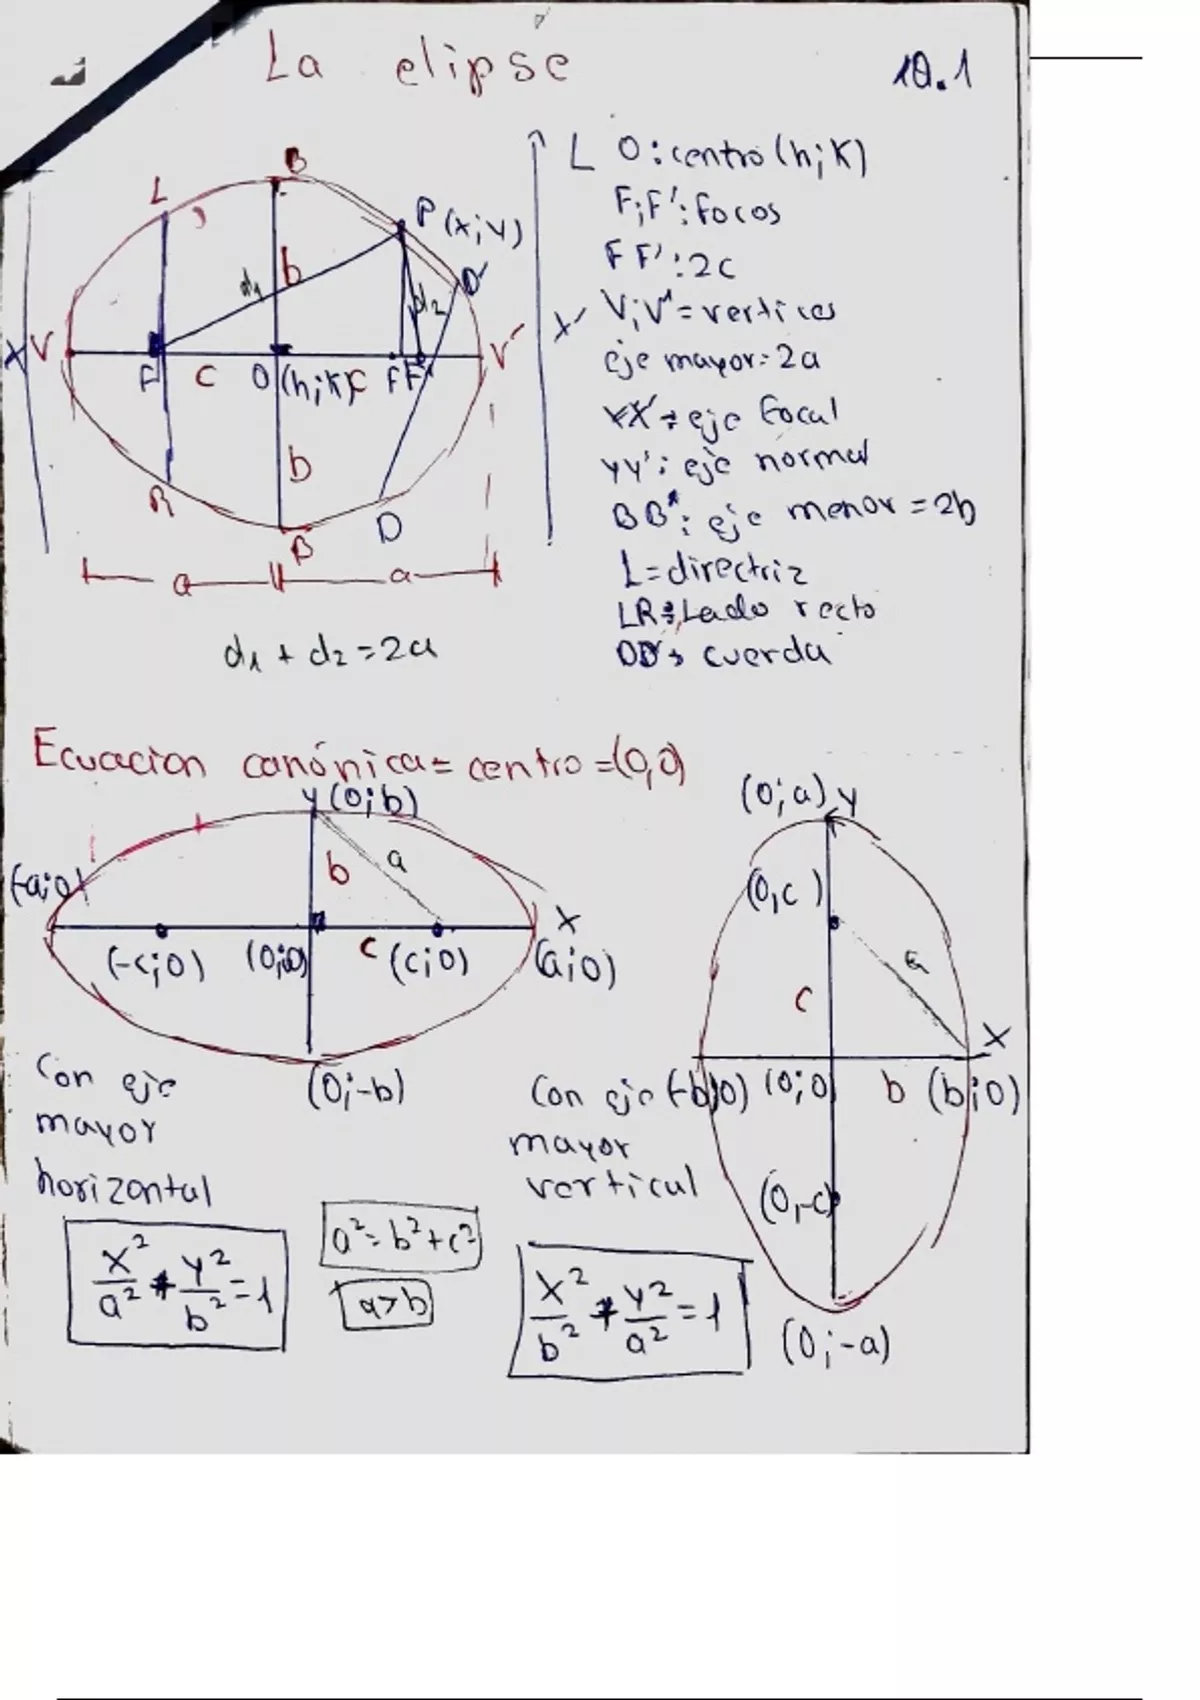 La elipse
10.1
L
B
P(x;y)
b
d1
d2
D'
X
V
F
C
O(h;k)
C
F'
V'
X'
b
R
B
D
a
a
d1 + d2 = 2a
L O: centro (h;K)
F;F': focos
FF': 2c
V;V' = vertices
eje mayor: 2a
XX': eje focal
yy': eje normal
BB': eje menor = 2b
L = directriz
LR: Lado recto
DD': cuerda
Ecuacion canónica = centro = (0,0)
y (0;b)
(-a;0)
b
a
X
(-c;0)
(0;0)
c
(c;0)
(a;0)
(0;-b)
Con eje
mayor
horizontal
x²/a² + y²/b² = 1
a² = b² + c²
a>b
(0;a) y
(0,c)
a
c
X
(-b;0)
(0;0)
b
(b;0)
(0,-c)
(0;-a)
Con eje
mayor
vertical
x²/b² + y²/a² = 1